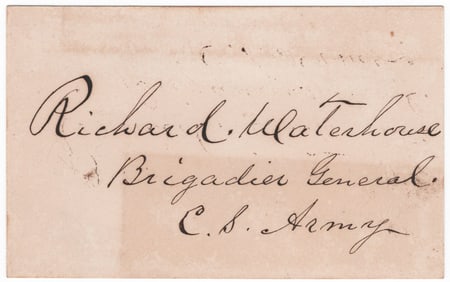 Richard. Waterhouse
Brigadier General.
C. S. Army